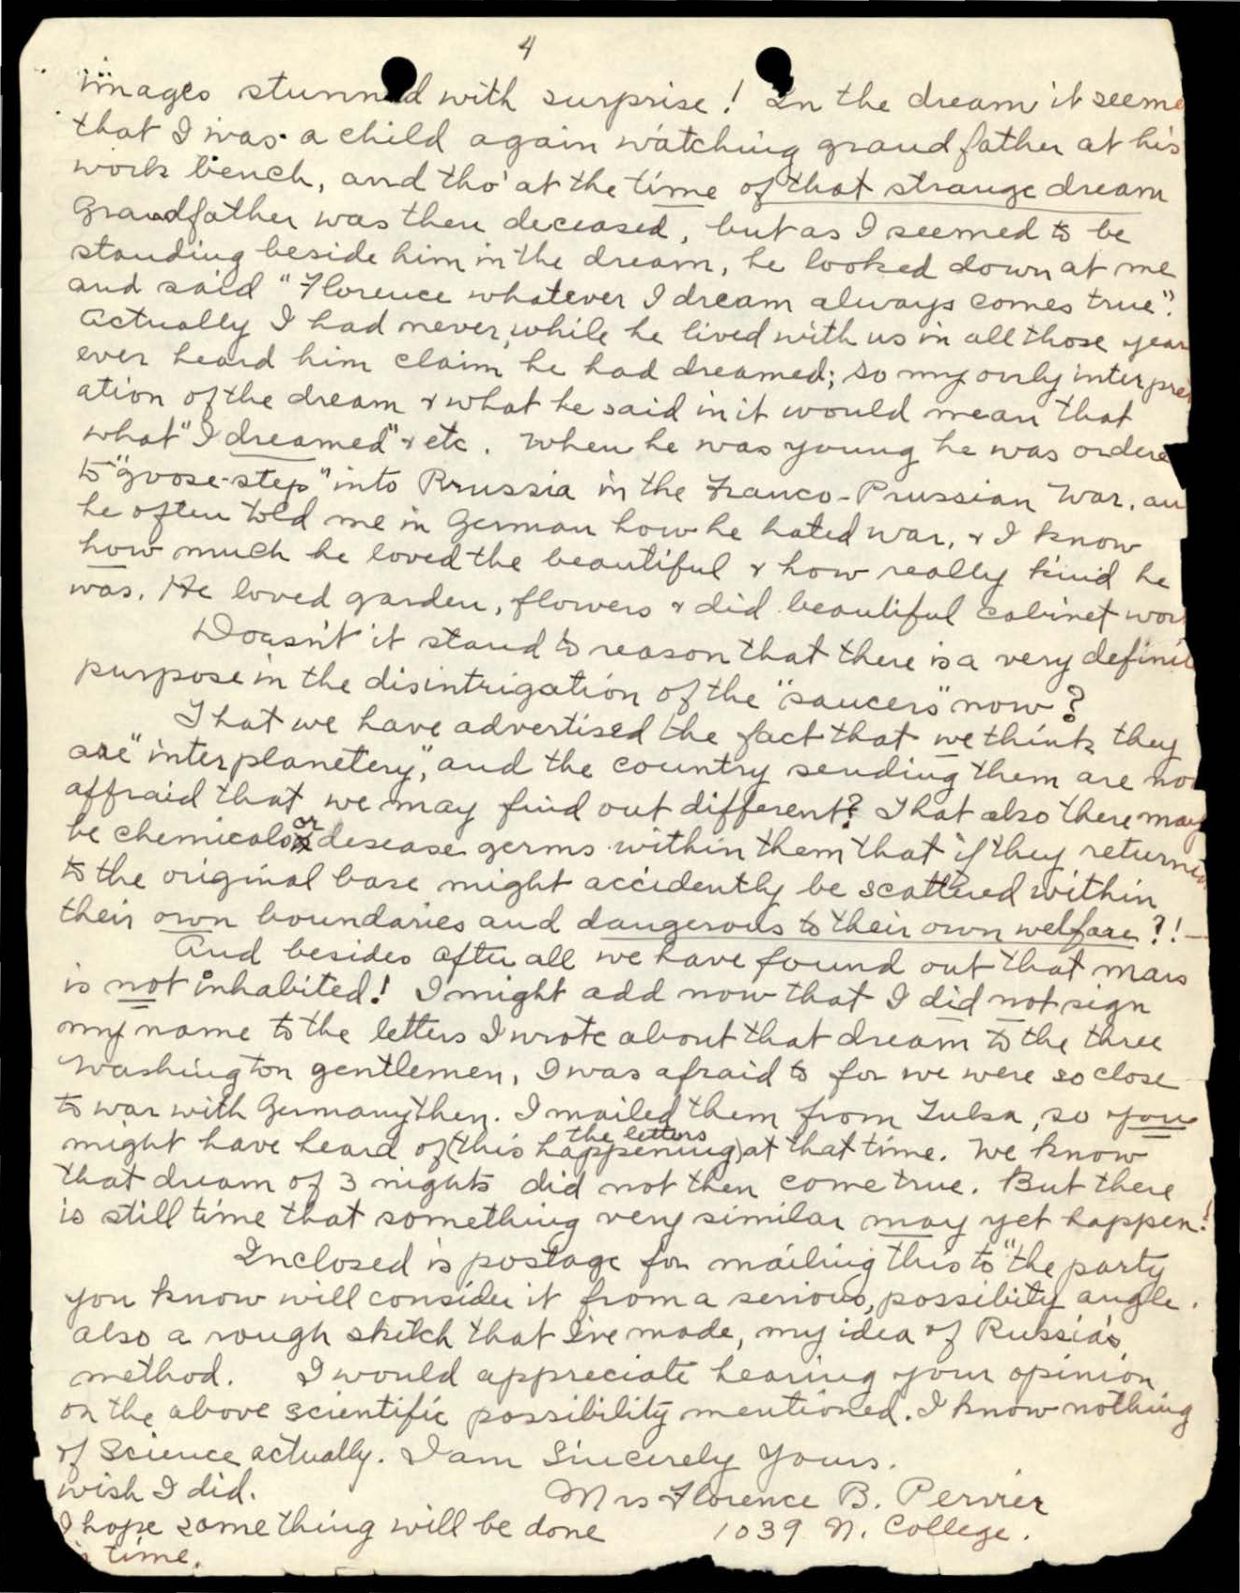 4
images stunned with surprise! In the dream it seeme
that I was a child again watching grandfather at his
work bench, and tho' at the time of that strange dream
Grandfather was then deceased, but as I seemed to be
standing beside him in the dream, he looked down at me
and said "Florence whatever I dream always comes true".
Actually I had never, while he lived with us in all those year
ever heard him claim he had dreamed; so my only interpre
ation of the dream & what he said in it would mean that
what "I dreamed" & etc. When he was young he was ordere
to "goose-step" into Prussia in the Franco-Prussian War, an
he often told me in German how he hated war, & I know
how much he loved the beautiful & how really kind he
was. He loved garden, flowers & did beautiful cabinet wor
Doesn't it stand to reason that there is a very definit
purpose in the disintrigation of the "saucers" now?
That we have advertised the fact that we think they
are "interplanetery", and the country sending them are no
affraid that we may find out different? That also there may
be chemicals or desease germs within them that if they returne
to the original base might accidently be scattered within
their own boundaries and dangerous to their own welfare?!-
And besides after all we have found out that mars
is not inhabited! I might add now that I did not sign
my name to the letters I wrote about that dream to the three
Washington gentlemen, I was afraid to for we were so close
to war with Germany then. I mailed them from Tulsa, so you
might have heard of (this happening) the letters at that time. We know
that dream of 3 nights did not then come true. But there
is still time that something very similar may yet happen!
Inclosed is postage for mailing this to "the party
you know will consider it from a serious, possibity angle.
also a rough sketch that I've made, my idea of Russia's
method. I would appreciate hearing your opinion
on the above scientific possibility mentioned. I know nothing
of Science actually. I am Sincerely Yours.
wish I did. Mrs Florence B. Pervier
I hope something will be done 1039 N. College.
time.